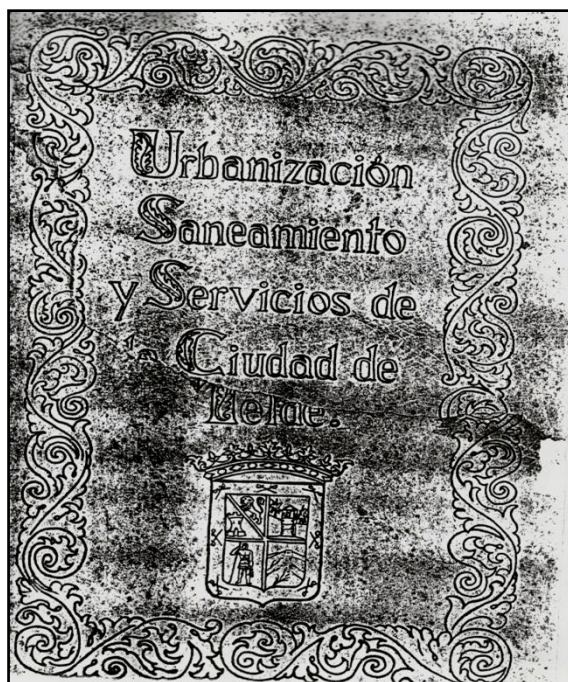 Urbanización
Saneamiento
y Servicios de
la Ciudad de
Telde.